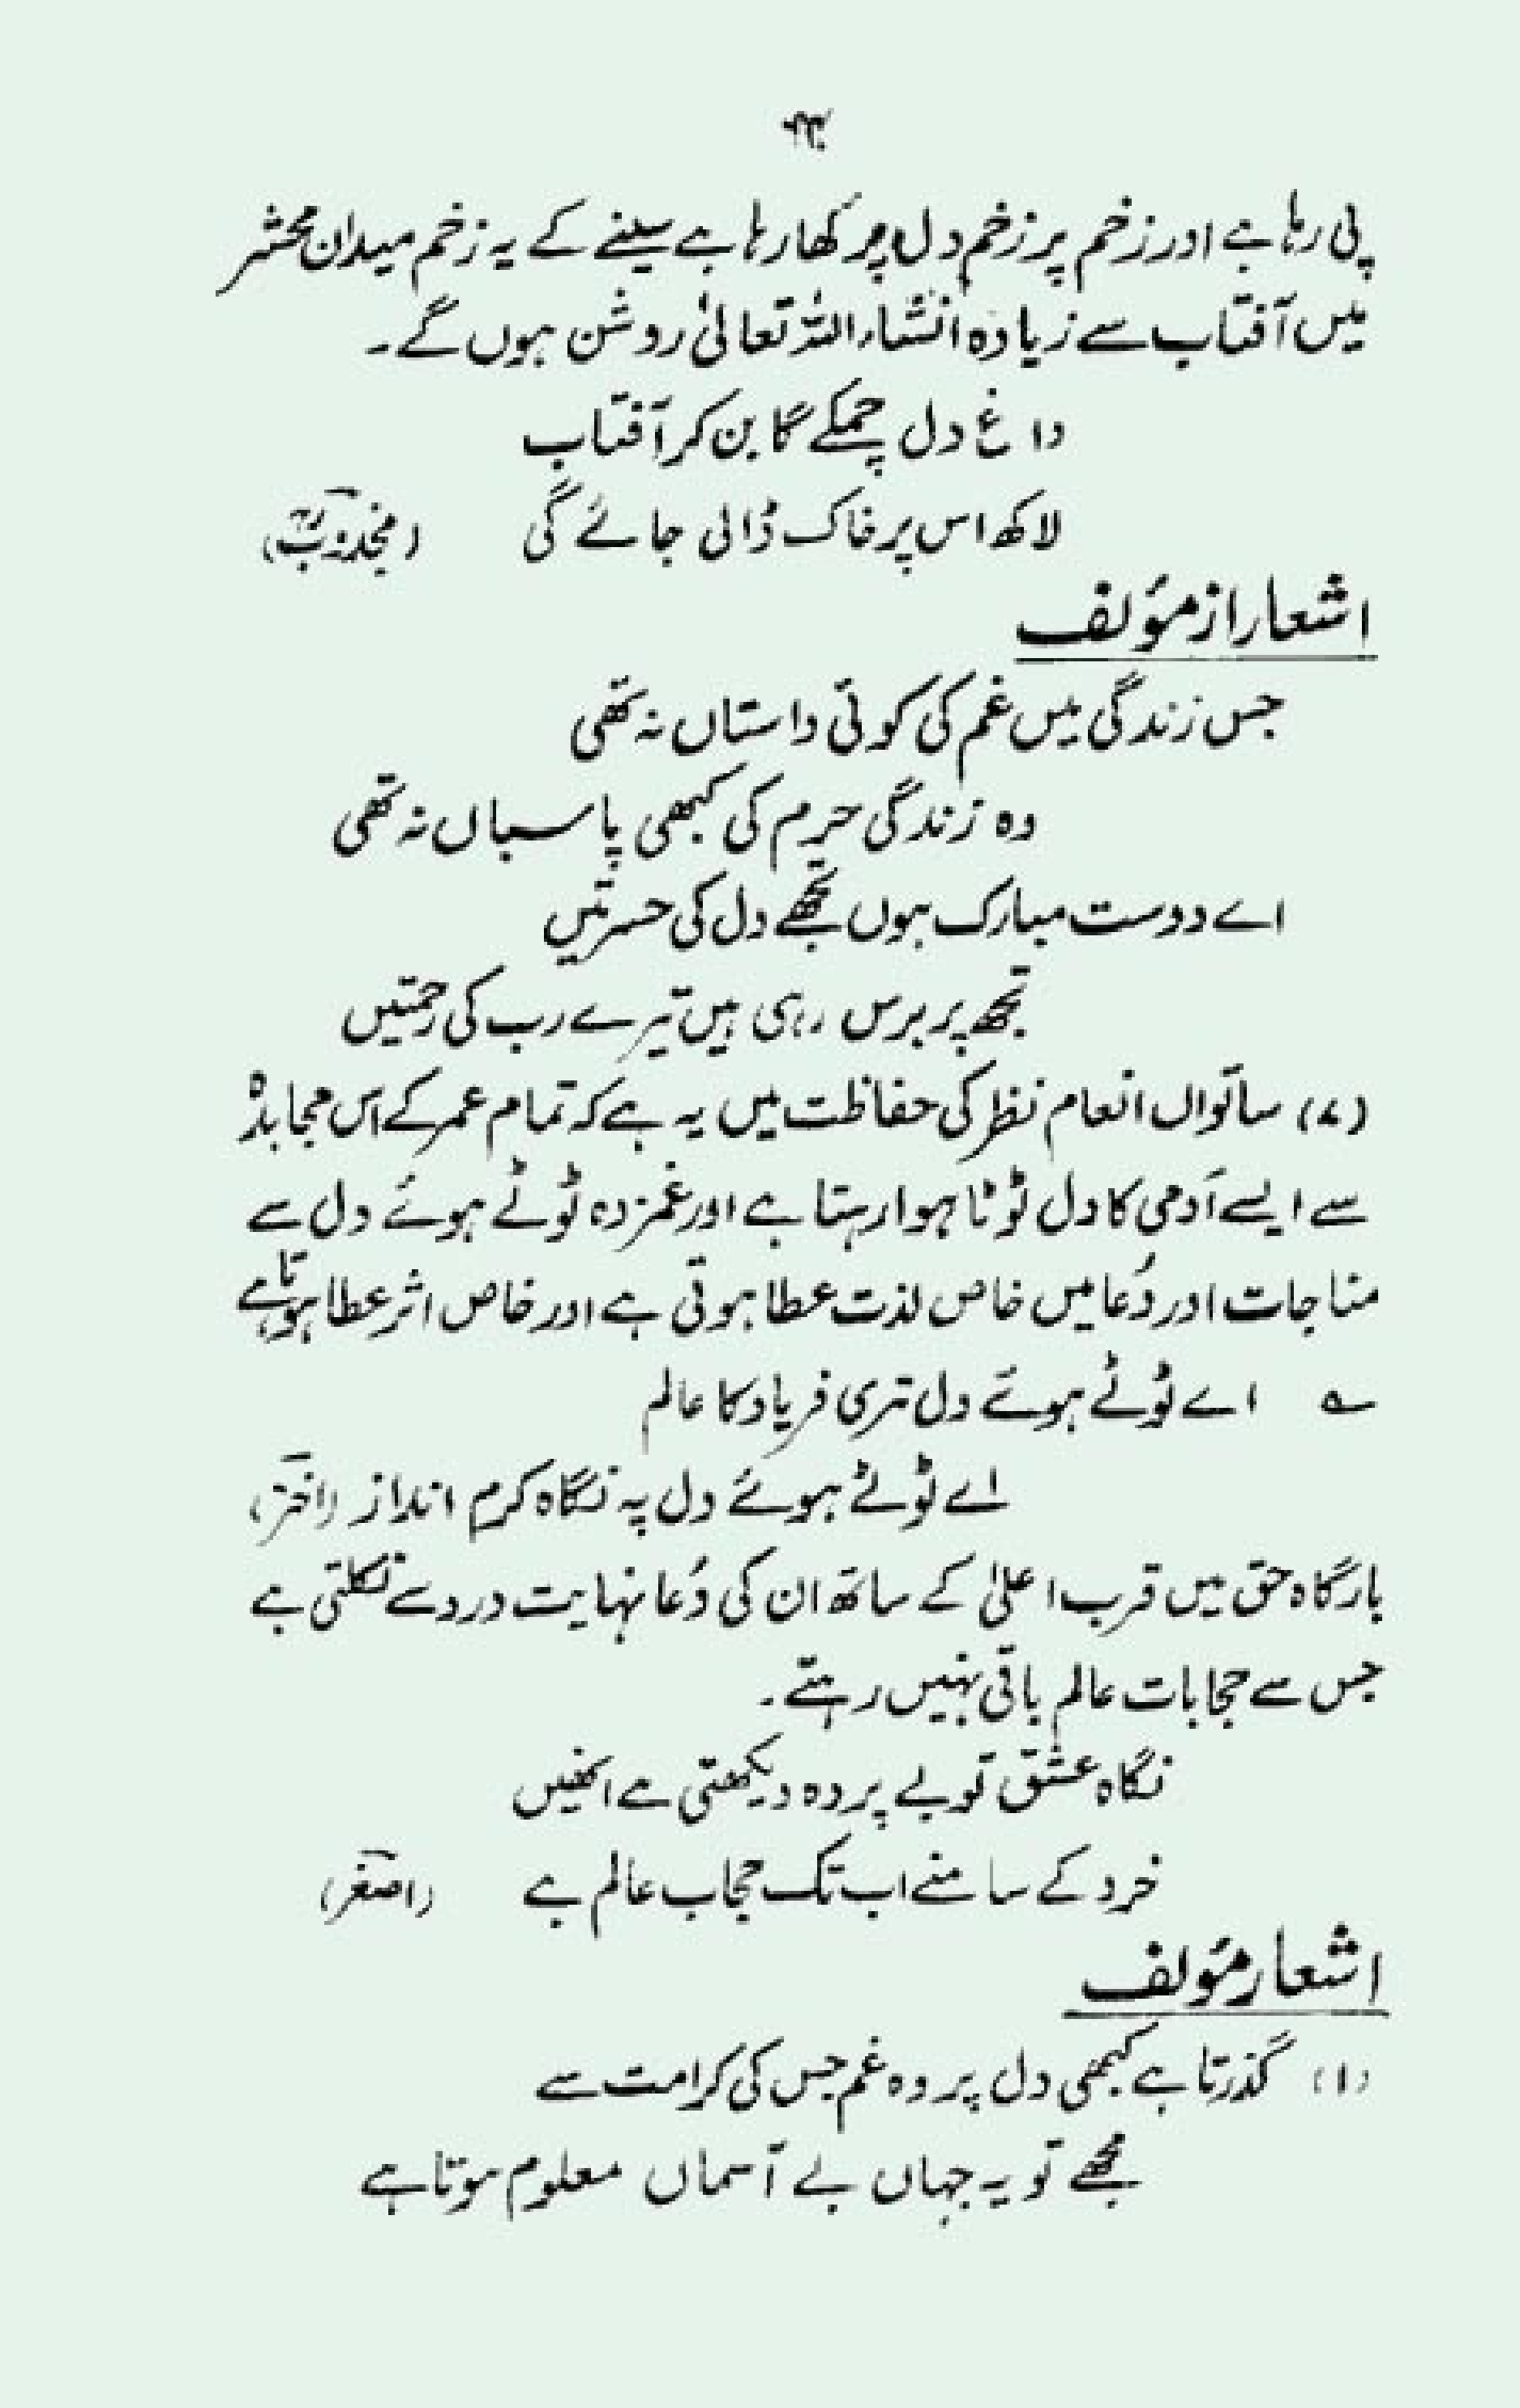 پی رہا ہے اور زخم پر زخم دل پر کھا رہا ہے سینے کے یہ زخم میدان محشر
میں آفتاب سے زیادہ انشاء اللہ تعالیٰ روشن ہوں گے۔
داغ دل چمکے گا بن کر آفتاب
لاکھ اس پر خاک ڈالی جائے گی (مجذوبؒ)
اشعار از مؤلف
جس زندگی میں غم کی کوئی داستاں نہ تھی
وہ زندگی حرم کی کبھی پاسباں نہ تھی
اے دوست مبارک ہوں تجھے دل کی حسرتیں
تجھ پر برس رہی ہیں تیرے رب کی رحمتیں
(۷) ساتواں انعام نظر کی حفاظت میں یہ ہے کہ تمام عمر کے اس مجاہدہ
سے ایسے آدمی کا دل ٹوٹا ہوا رہتا ہے اور غمزدہ ٹوٹے ہوئے دل سے
مناجات اور دُعا میں خاص لذت عطا ہوتی ہے اور خاص اثر عطا ہوتا ہے
؎ اے ٹوٹے ہوئے دل تری فریاد کا عالم
اے ٹوٹے ہوئے دل پہ نگاہ کرم انداز (اختر)
بارگاہ حق میں قرب اعلیٰ کے ساتھ ان کی دُعا نہایت درد سے نکلتی ہے
جس سے حجابات عالم باقی نہیں رہتے۔
نگاہ عشق تو بے پردہ دیکھتی ہے انھیں
خرد کے سامنے اب تک حجاب عالم ہے (اصغر)
اشعار مؤلف
(۱) گذرتا ہے کبھی دل پر وہ غم جس کی کرامت سے
مجھے تو یہ جہاں بے آسماں معلوم ہوتا ہے